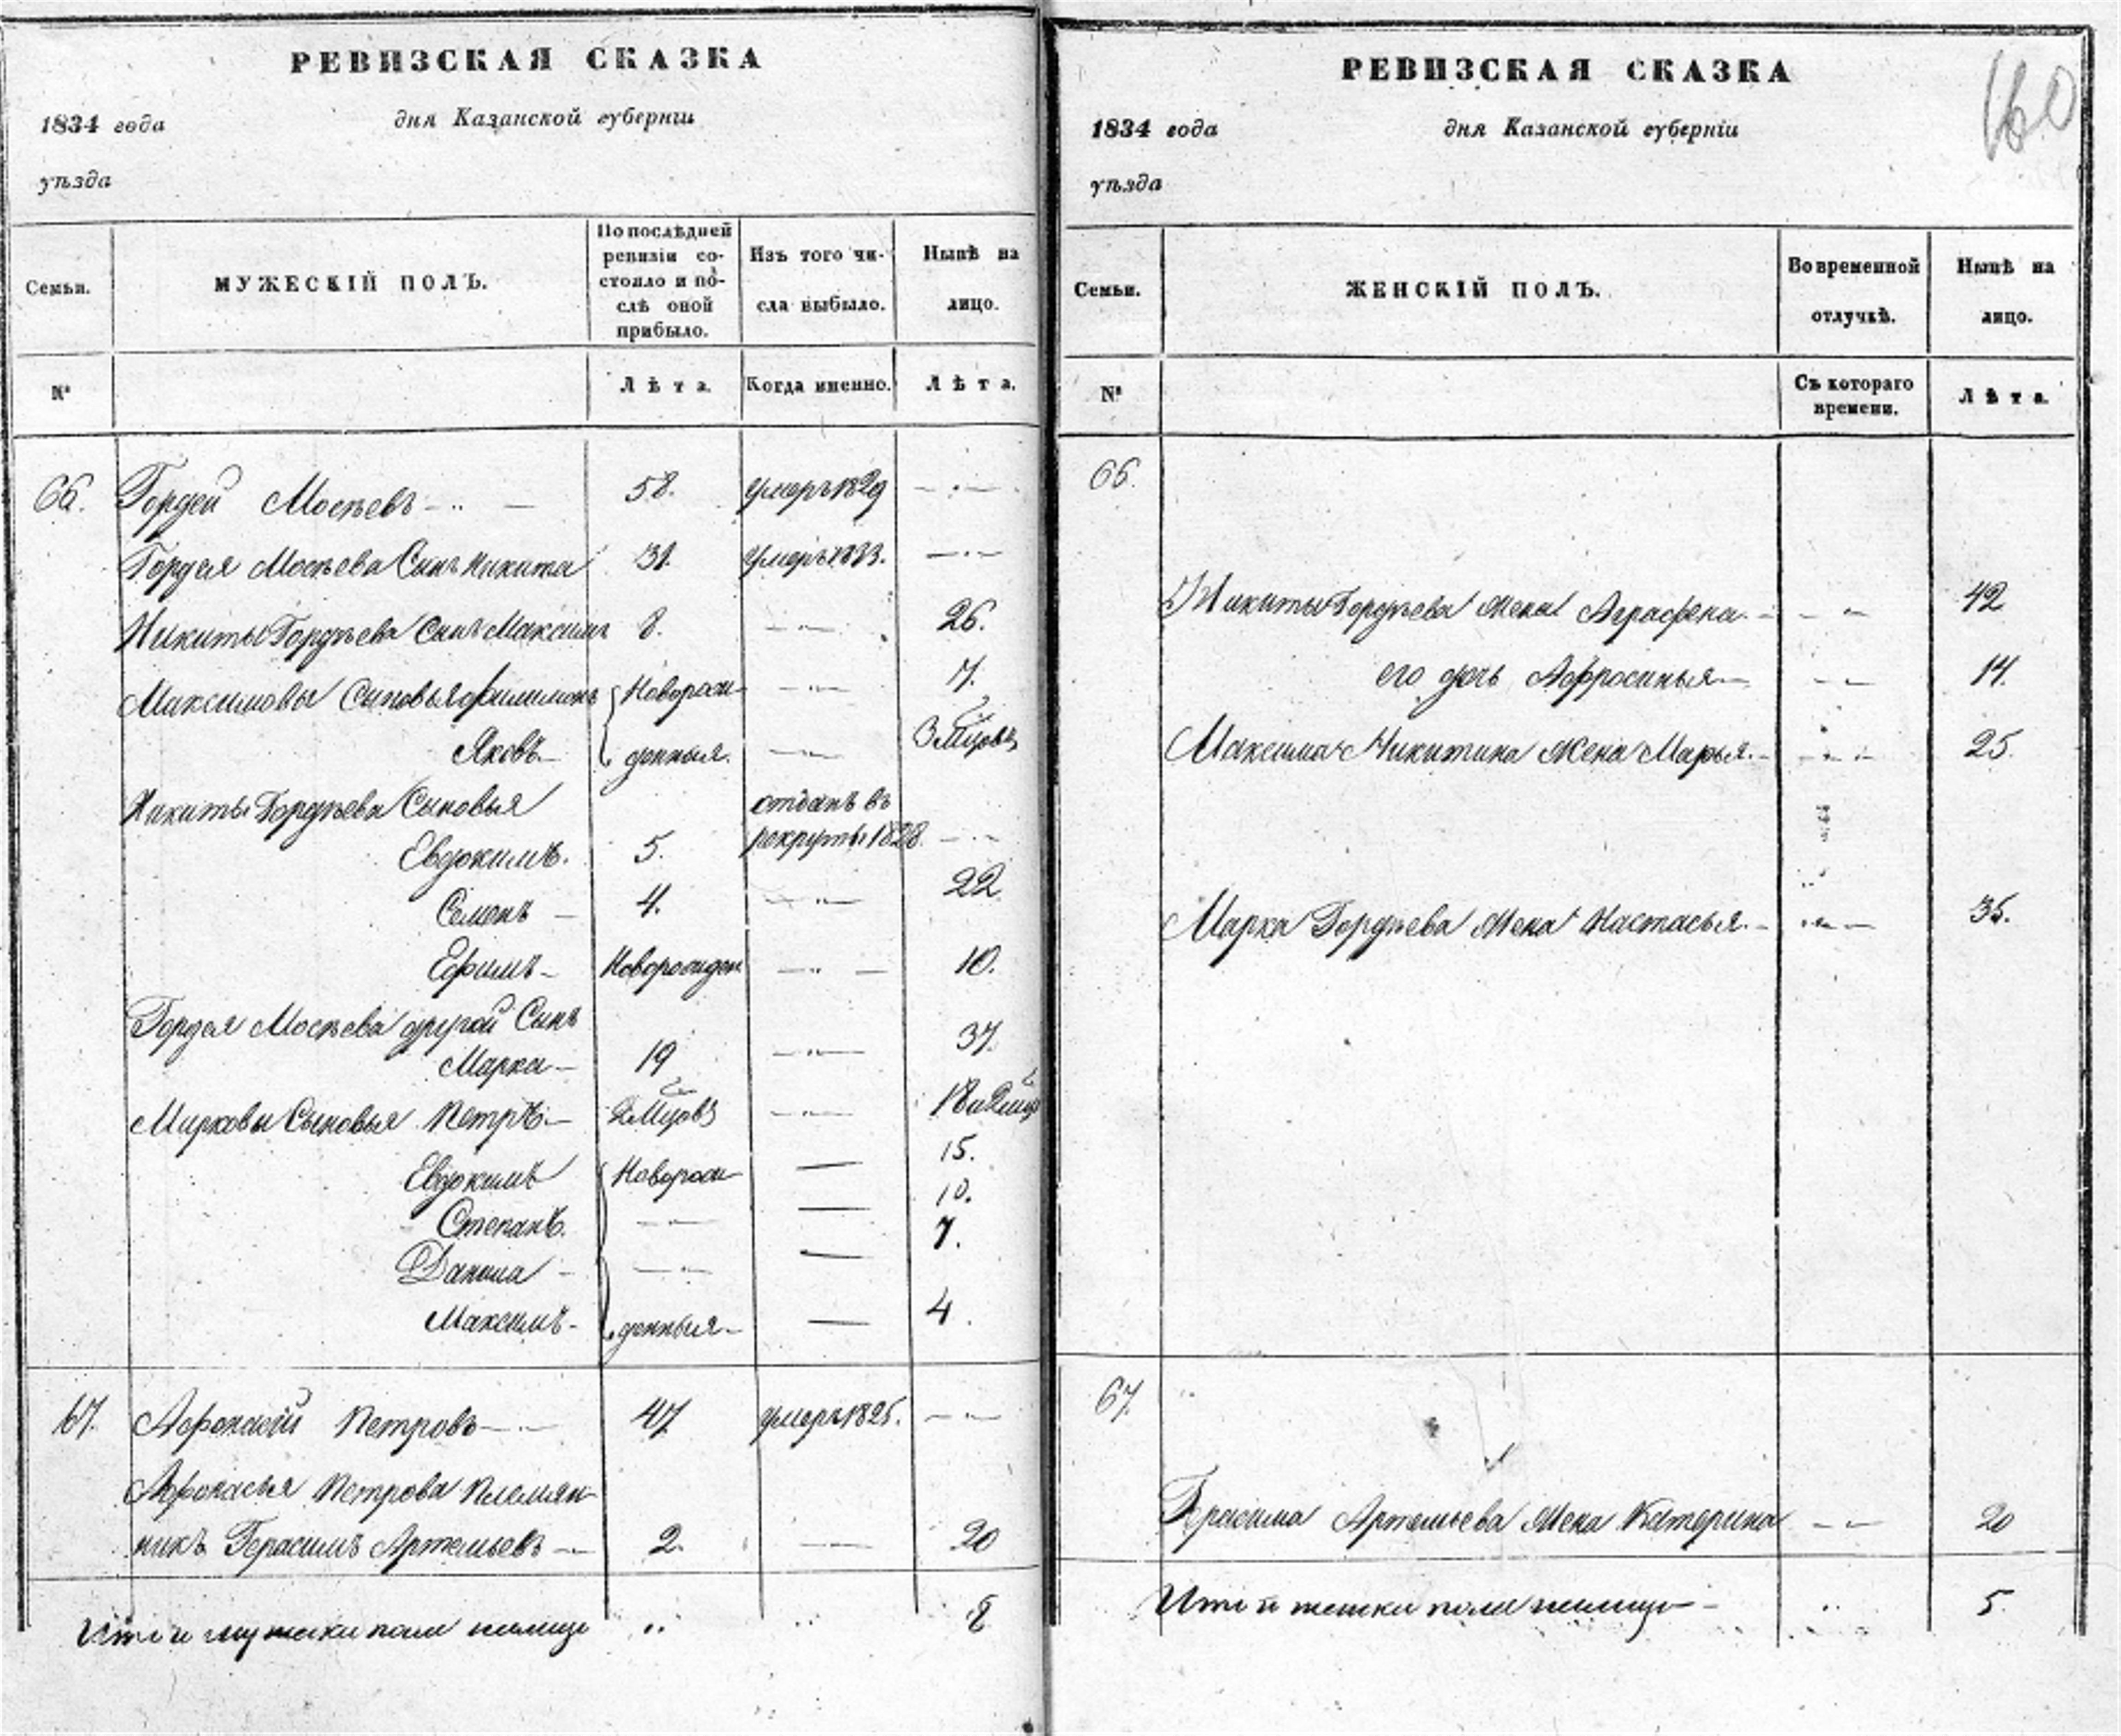 РЕВИЗСКАЯ СКАЗКА
1834 года
дня Казанской губернiи
уѣзда
Семьи.
МУЖЕСКIЙ ПОЛЪ.
По послѣдней
ревизiи со-
стояло и по-
слѣ оной
прибыло.
Изъ того чи-
сла выбыло.
Нынѣ на
лицо.
№
Лѣта.
Когда именно.
Лѣта.
66. Гордей Мосѣевъ 58. умеръ 1829
Гордея Мосѣева Сынъ Никита 31. умеръ 1833.
Никиты Гордѣева Сынъ Максимъ 8. 26.
Максимовы Сыновья Филимонъ Новорож- 7.
Яковъ денныя. 3 Мцовъ
Никиты Гордѣева Сыновья отданъ въ
Евдокимъ. 5. рекруты 1828.
Семенъ 4. 22
Ефимъ Новорожден 10.
Гордея Мосѣева другой Сынъ
Марка 19 37.
Марковы Сыновья Петръ 2 Мцовъ 18 и 2 мцо
Евдокимъ Новорож 15.
Степанъ. 10.
Данила 7.
Максимъ денныя 4.
67. Афонасiй Петровъ 47 умеръ 1825.
Афонасья Петрова Племян-
никъ Герасимъ Артемьевъ 2. 20
Итого мужеска пола налицо 8
РЕВИЗСКАЯ СКАЗКА
160
1834 года
дня Казанской губернiи
уѣзда
Семьи.
ЖЕНСКIЙ ПОЛЪ.
Во временной
отлучкѣ.
Нынѣ на
лицо.
№
Съ котораго
времени.
Лѣта.
66.
Никиты Гордѣева Жена Аграфена 42
его дочь Афросинья 14.
Максима Никитина Жена Марья 25
Марка Гордѣева Жена Настасья 35.
67.
Герасима Артемьева Жена Катерина 20
Итого женска пола налицо 5